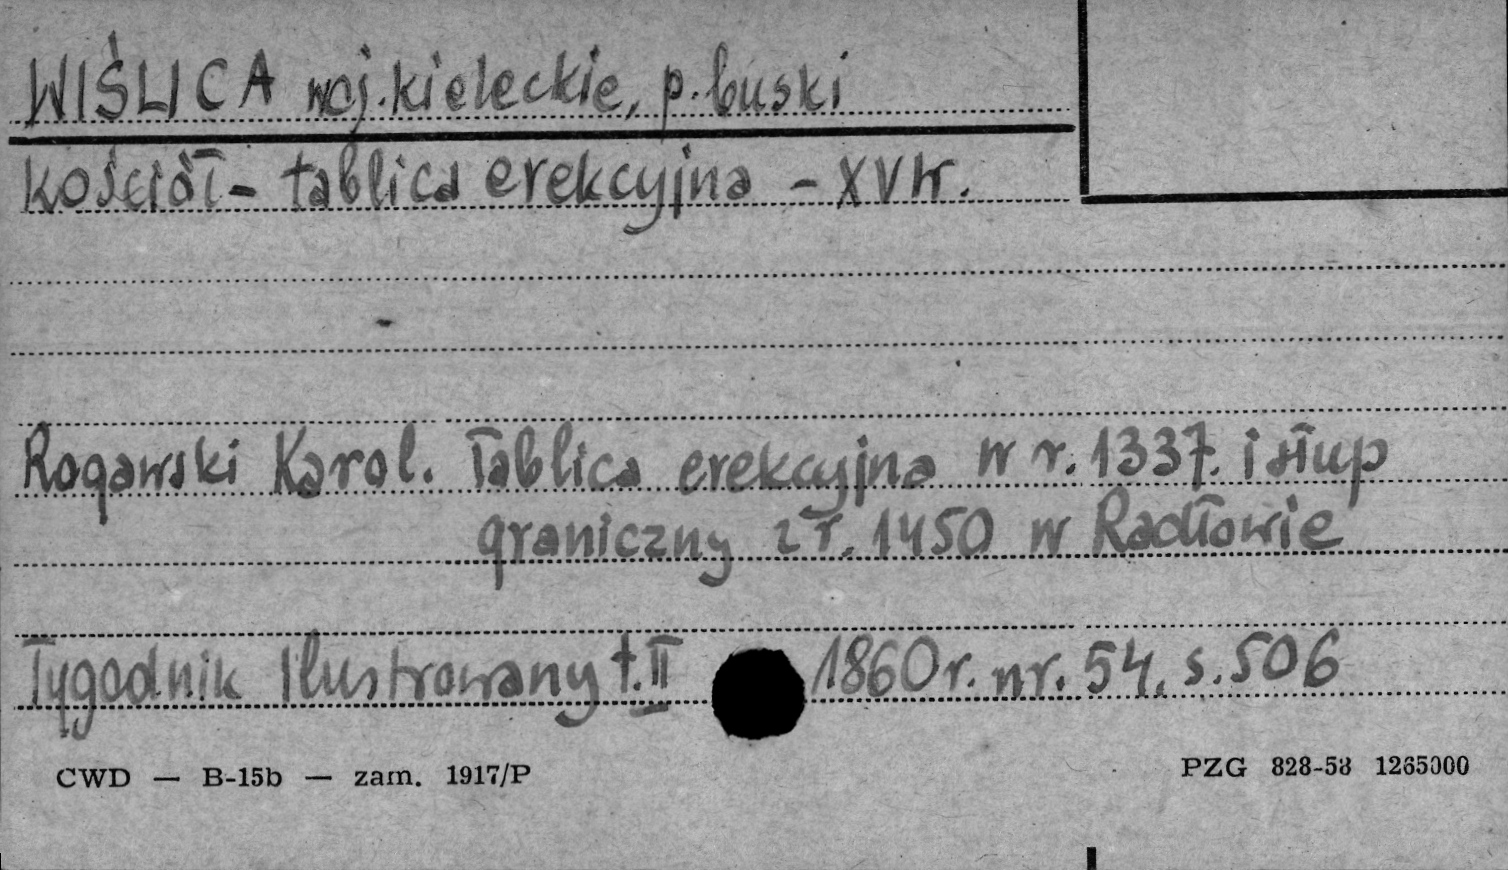 WIŚLICA woj. kieleckie, p. buski
kościół - tablica erekcyjna - XV w.
Rogawski Karol. Tablica erekcyjna w r. 1337. i słup
graniczny z r. 1450 w Radłowie
Tygodnik Ilustrowany t. II 1860 r. nr. 54, s. 506
CWD — B-15b — zam. 1917/P PZG 828-58 1265000